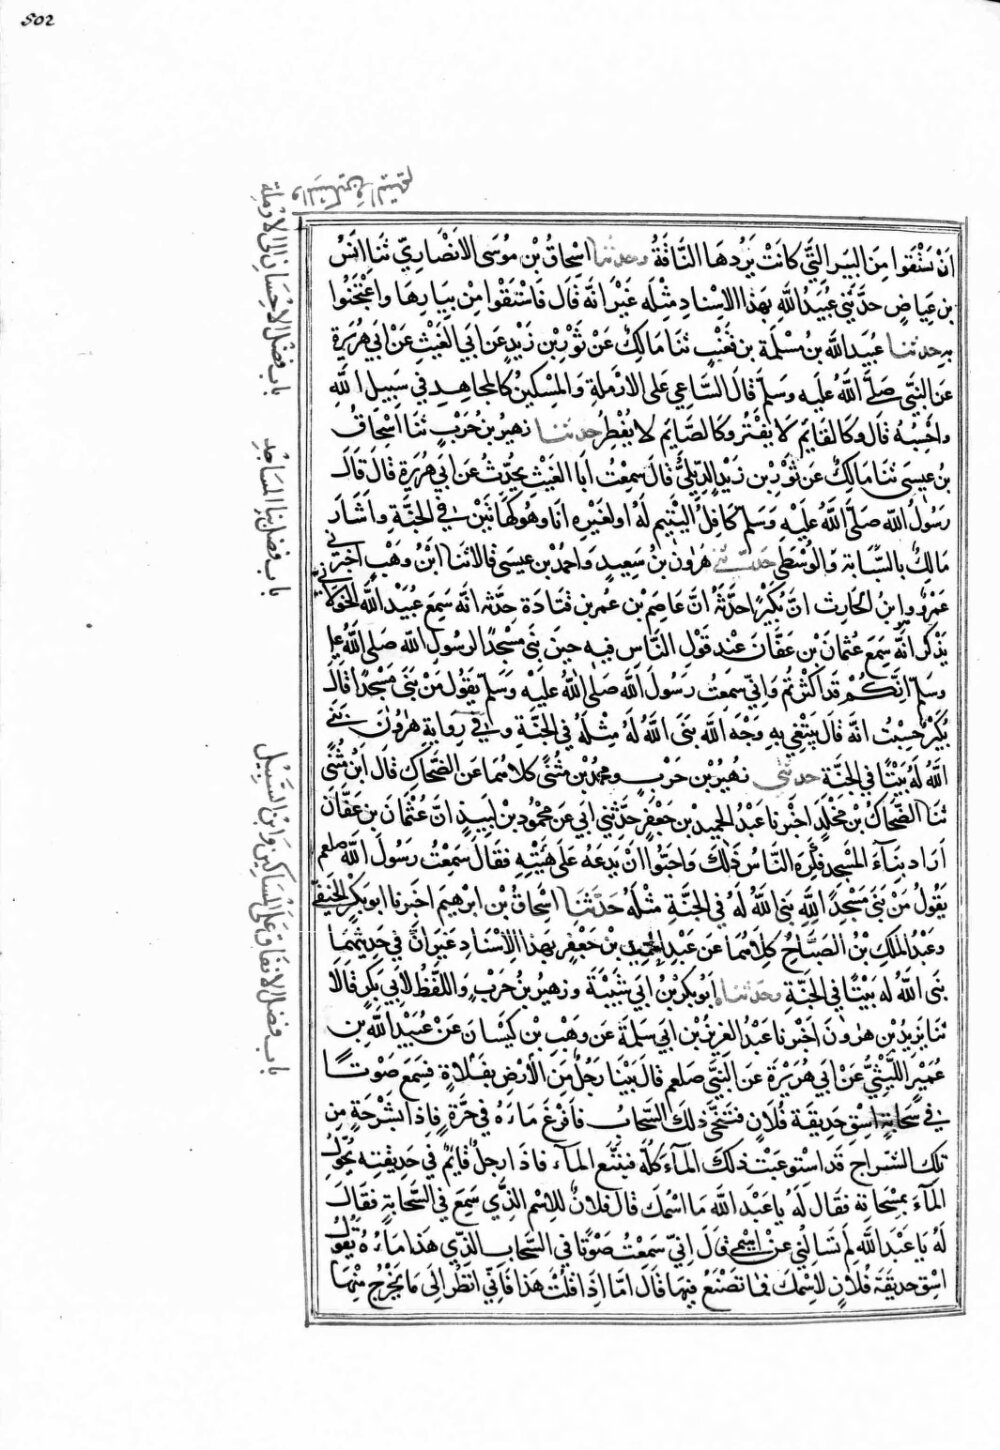 502
باب فضل الاحسان الى الارملة
والمسكين واليتيم
ان يستقوا من البير التي كانت تردها الناقة وحدثنا اسحاق بن موسى الانصاري ثنا انس
بن عياض حدثني عبيد الله بهذا الاسناد مثله غير انه قال فاستقوا من بيارها واعتجنوا
به حدثنا عبيد الله بن مسلمة بن قعنب ثنا مالك عن ثور بن زيد عن ابي الغيث عن ابي هريرة
عن النبي صلى الله عليه وسلم قال الساعي على الارملة والمسكين كالمجاهد في سبيل الله
واحسبه قال وكالقايم لا يفتر وكالصايم لا يفطر حدثنا زهير بن حرب ثنا اسحاق
بن عيسى ثنا مالك عن ثور بن زيد الديلي قال سمعت ابا الغيث يحدث عن ابي هريرة قال قال
رسول الله صلى الله عليه وسلم كافل اليتيم له او لغيره انا وهو كهاتين في الجنة واشار
مالك بالسبابة والوسطى حدثني هرون بن سعيد واحمد بن عيسى قالا ثنا ابن وهب اخبرني
عمرو وهو ابن الحارث ان بكيرا حدثه ان عاصم بن عمر بن قتادة حدثه انه سمع عبيد الله الخولاني
يذكر انه سمع عثمان بن عفان عند قول الناس فيه حين بنى مسجد الرسول الله صلى الله عليه
وسلم انكم قد اكثرتم واني سمعت رسول الله صلى الله عليه وسلم يقول من بنى مسجدا قال
بكير حسبت انه قال يبتغي به وجه الله بنى الله له مثله في الجنة وفي رواية هرون بنى
الله له بيتا في الجنة حدثني زهير بن حرب ومحمد بن مثنى كلاهما عن الضحاك قال ابن مثنى
ثنا الضحاك بن مخلد اخبرنا عبد الحميد بن جعفر حدثني ابي عن محمود بن لبيد ان عثمان بن عفان
اراد بناء المسجد فكره الناس ذلك واحبوا ان يدعه على هيئته فقال سمعت رسول الله صلعم
يقول من بنى مسجدا لله بنى الله له في الجنة مثله حدثنا اسحاق بن ابرهيم اخبرنا ابو بكر الحنفي
وعبد الملك بن الصباح كلاهما عن عبد الحميد بن جعفر بهذا الاسناد غير ان في حديثهما
بنى الله له بيتا في الجنة وحدثنا ابو بكر بن ابي شيبة وزهير بن حرب واللفظ لابي بكر قالا
ثنا يزيد بن هرون اخبرنا عبد العزيز بن ابي سلمة عن وهب بن كيسان عن عبيد الله بن
عمير الليثي عن ابي هريرة عن النبي صلعم قال بينا رجل من الارض بفلاة فسمع صوتا
في سحابة اسق حديقة فلان فتنحى ذلك السحاب فافرغ ماءه في حرة فاذا شرجة من
تلك الشراج قد استوعبت ذلك الماء كله فتتبع الماء فاذا رجل قايم في حديقته يحول
الماء بمسحاته فقال له يا عبد الله ما اسمك قال فلان للاسم الذي سمع في السحابة فقال
له يا عبد الله لم تسالني عن اسمي قال اني سمعت صوتا في السحاب الذي هذا ماءه يقول
اسق حديقة فلان لاسمك فما تصنع فيها قال اما اذا قلت هذا فاني انظر الى ما يخرج منها
باب فضل بنا المساجد
باب فضل الانفاق على المساكين وابن السبيل